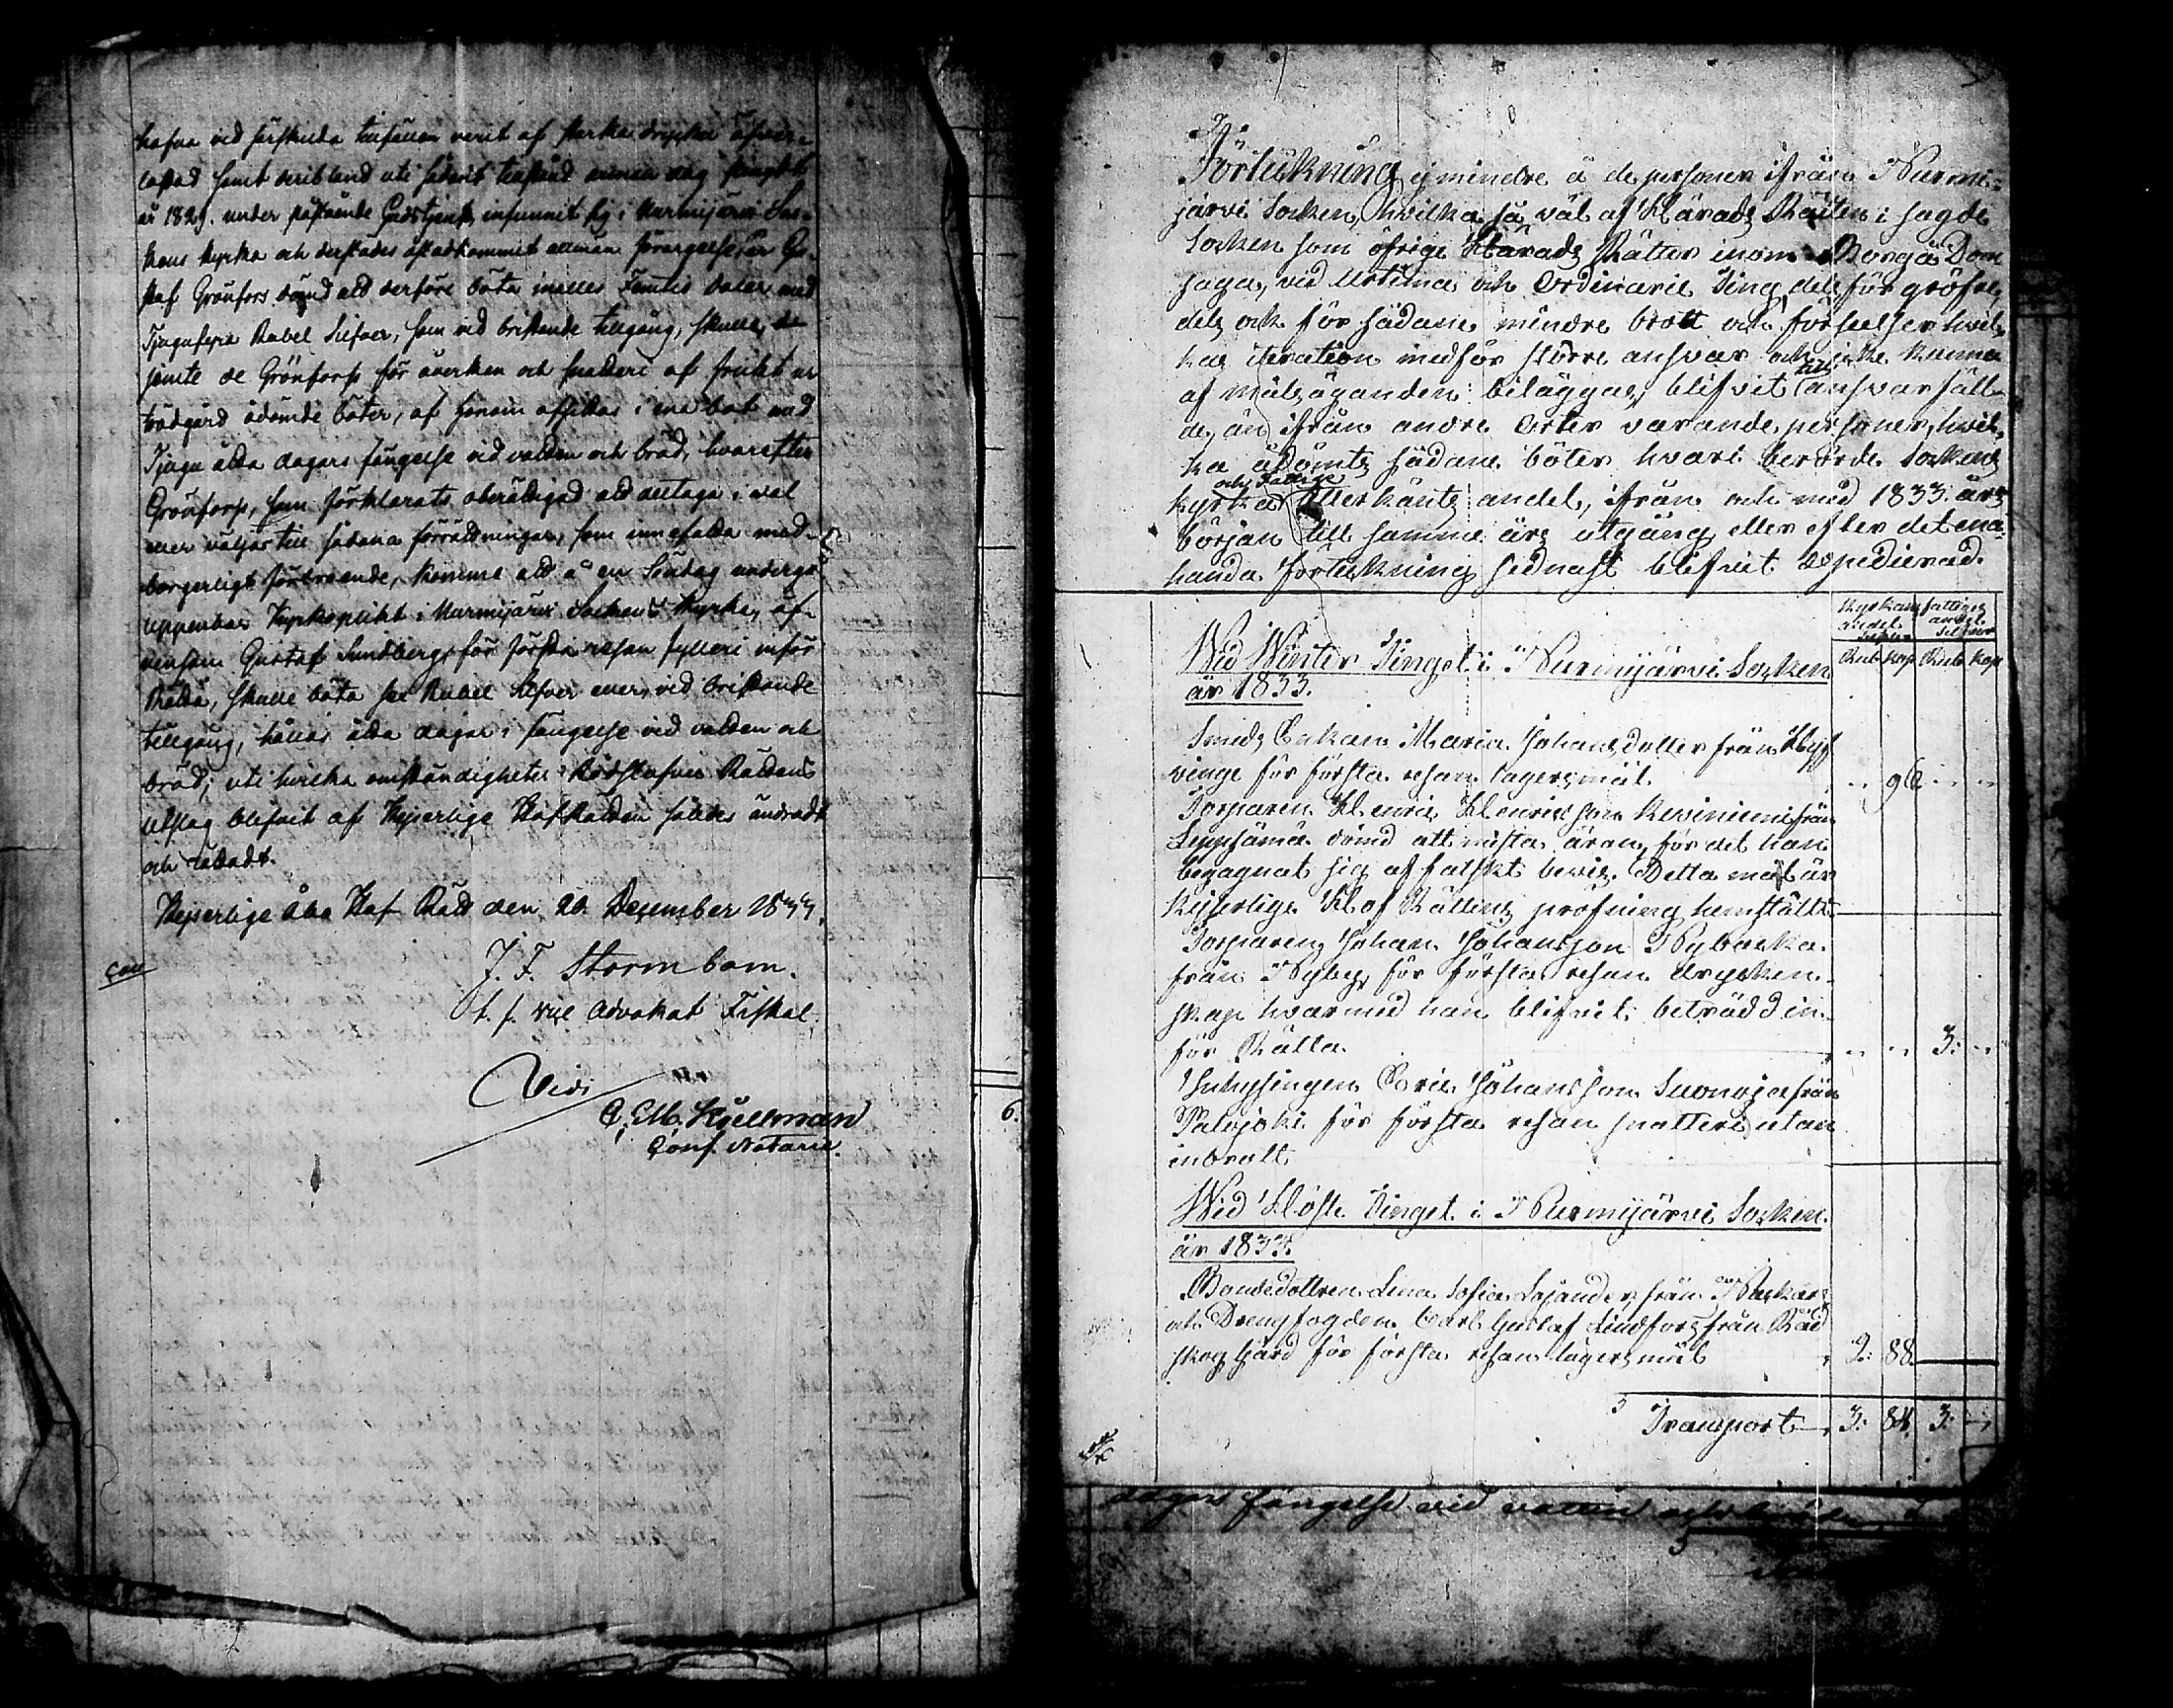 hafva vid särskilda tillfällen verit af starka drycker öfver-
lastad samt deribland uti sådant tillstånd annan dag Pingst
år 1829. under påstående Gudstjenst, infunnit sig i Nurmijärvi Soc-
kens kyrka och derstädes åstadkommit allmän förargelse, är Gu-
staf Grönfors dömd att derföre böta inalles Femtio daler med
Tjugufyra Rubel Silfver, som vid bristande tillgång, skulle
jemte de Grönfors för åverkan och snatteri af frukt ur
trädgård ådömde böter, af honom afsittas i ena bot med
Tjugu åtta dagars fängelse vid vatten och bröd, hvarefter
Grönfors, som förklarats obehörigad att deltaga i val
eller väljas till sådana förrättningar, som innefatta med-
borgerligt förtroende, komme att å en Söndag undergå
uppenbar Kyrkoplikt i Nurmijärvi Sockens Kyrka, äf-
vensom Gustaf Sundberg, för första resan fylleri inför
Rätta, skulle böta sex Rubel Silfver eller, vid bristande
tillgång, hållas åtta dagar i fängelse vid vatten och
bröd; uti hvilka omständigheter Rådstufvu Rättens
utslag blifvit af Kejserlige Hof Rätten således ändradt
och rättadt.
Kejserlige Åbo Hof Rätt den 20 December 1833.
J. F. Stormbom.
t. f. vice Advokat Fiskal.
Vidi
C. M. Kjellman
Conf. Notarie.
6.
Förtekning ej mindre å de personer ifrån Nurmi-
järvi Socken, hvilka så väl af Härads Rätten i sagde
Socken som öfrige Härads Rätter inom Borgå Dom
saga, vid Urtima och Ordinarie Ting, dels för gröfre,
dels ock för sådane mindre brott och förseelser hvil-
kas iteration medför större ansvar och icke kunna
af målsäganden biläggas, blifvit till ansvar fäll-
de, än ifrån andra Orter varande personer, hvil-
ka ådömts sådane böter hvari berörde Sockens
och Fattige
kyrka tillerkänts andel, ifrån och med 1833 års
början till samma års utgång eller efter det ena-
handa förtekning sednast blifvit expedierad.
Kyrkans andel Silfver fattiges andel Silfver
Rub. kop. Rub. kop.
Wid Winter Tinget i Nurmijärvi Socken
år 1833.
Smeds Enkan Maria Johansdotter från Hyf
vinge för första resan lägersmål. " 96 " "
Torparen Henric Henricsson Kevinieni från
Leppsämä dömd att mista äran, för det han
begagnat sig af falskt bevis. Detta mål är
Kejserlige Hof Rättens pröfning hemstäldt
Torparen Johan Johansson Nybacka
från Nyby, för första resan drycken-
skap hvarmed han blifvit beträdd in-
för Rätta. " " 3: "
Inhysingen Eric Johansson Suonoja från
Palojoki för första resan snatteri utan
inbrott.
Wid Höste Tinget i Nurmijärvi Socken
år 1833.
Bondedottren Lina Sofia Lojander från Nackars
och Drengfogden Carl Gustaf Lindfors från Råd
skog Gård för första resan lägersmål 2: 88.
Transport 3: 84. 3: "
dagars fängelse vid vatten och bröd